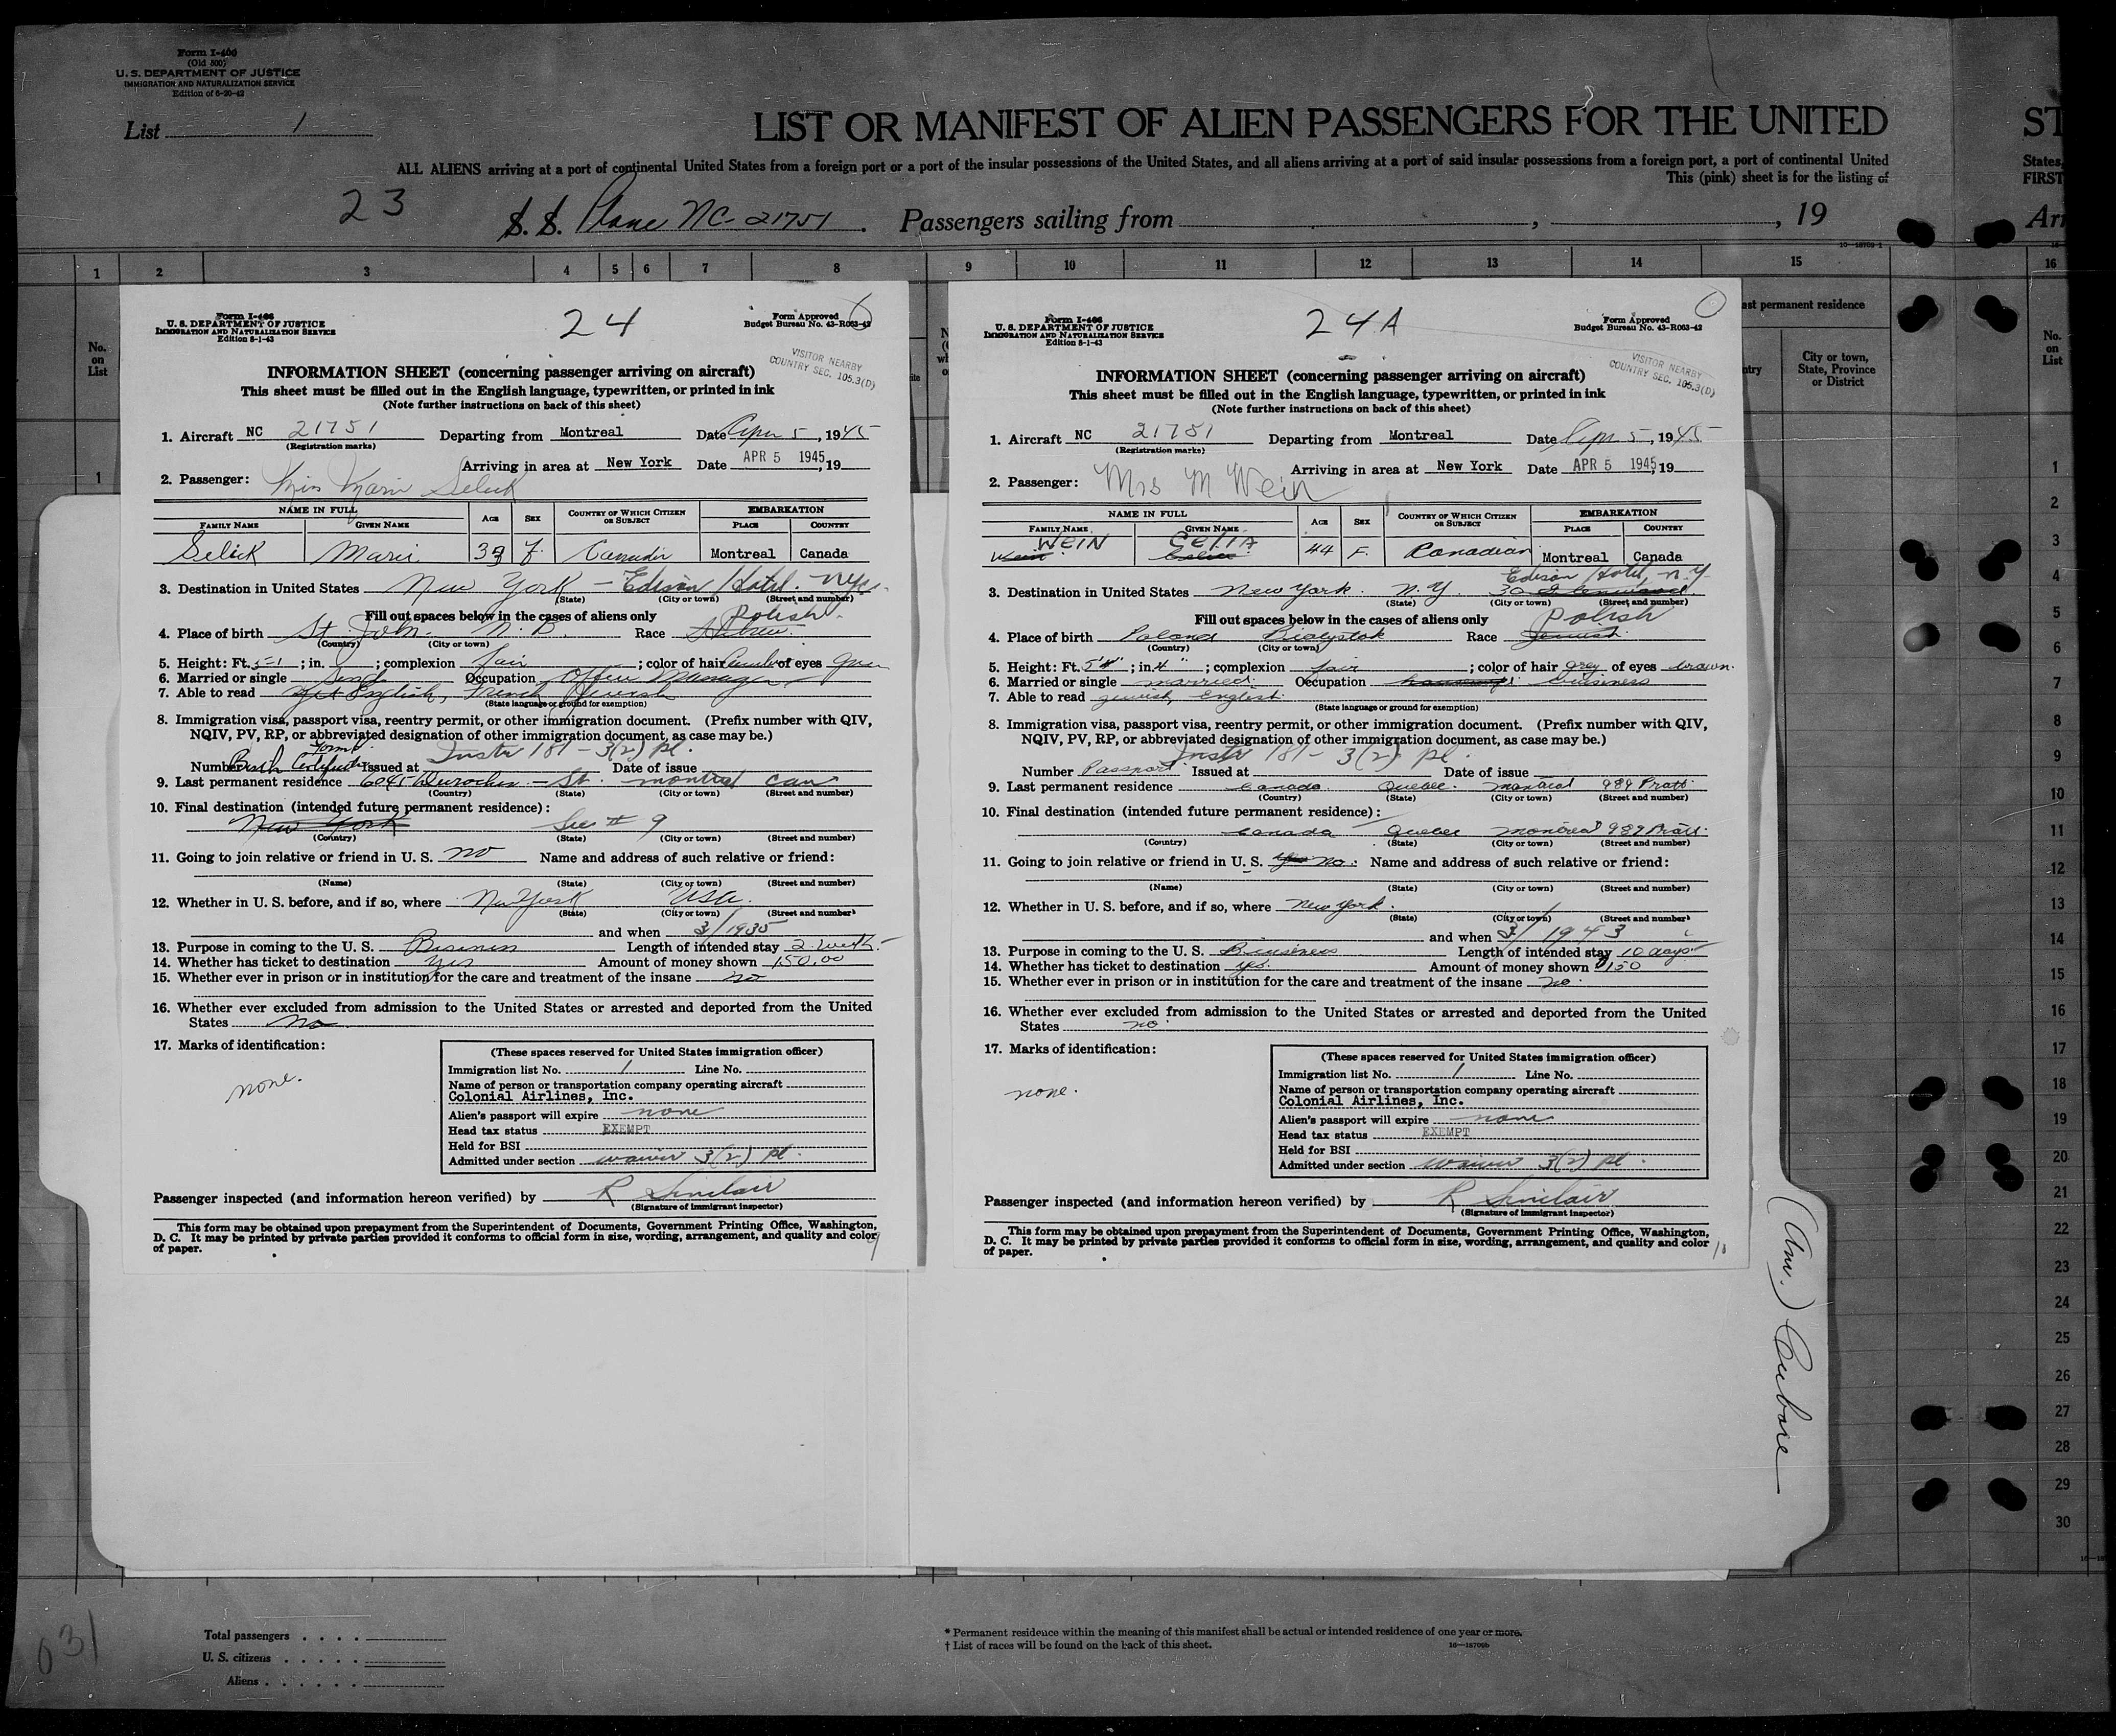 Form I-400
(Old 500)
U. S. DEPARTMENT OF JUSTICE
IMMIGRATION AND NATURALIZATION SERVICE
Edition of 6-20-42
List 1
LIST OR MANIFEST OF ALIEN PASSENGERS FOR THE UNITED
ST
ALL ALIENS arriving at a port of continental United States from a foreign port or a port of the insular possessions of the United States, and all aliens arriving at a port of said insular possessions from a foreign port, a port of continental United
States,
This (pink) sheet is for the listing of
FIRST
23
S. S. Plane NC-21751. Passengers sailing from , , 19
Arr
1 2 3 4 5 6 7 8 9 10 11 12 13 14 15 16
No.
on
List
1
Form I-466
U. S. DEPARTMENT OF JUSTICE
IMMIGRATION AND NATURALIZATION SERVICE
Edition 8-1-43
24
Form Approved
Budget Bureau No. 43-R063-42
VISITOR NEARBY
COUNTRY SEC. 105.3(D)
INFORMATION SHEET (concerning passenger arriving on aircraft)
This sheet must be filled out in the English language, typewritten, or printed in ink
(Note further instructions on back of this sheet)
1. Aircraft NC 21751 Departing from Montreal Date Apr 5, 1945
(Registration marks)
Arriving in area at New York Date APR 5 1945, 19
2. Passenger: Miss Marie Selick
NAME IN FULL AGE SEX COUNTRY OF WHICH CITIZEN OR SUBJECT EMBARKATION
FAMILY NAME GIVEN NAME PLACE COUNTRY
Selick Marie 39 F. Canada Montreal Canada
3. Destination in United States New York - Edison Hotel. NYC.
(State) (City or town) (Street and number)
Fill out spaces below in the cases of aliens only Polish
4. Place of birth St. John. N. B. Race Hebrew.
(Country) (City or town)
5. Height: Ft. 5-1 ; in. ; complexion fair ; color of hair of eyes
6. Married or single Single Occupation Office Manager
7. Able to read yes English, French Jewish
(State language or ground for exemption)
8. Immigration visa, passport visa, reentry permit, or other immigration document. (Prefix number with QIV,
NQIV, PV, RP, or abbreviated designation of other immigration document, as case may be.)
Form Instr 181-3(2) pl.
Number Birth Certificate Issued at Date of issue
9. Last permanent residence 6045 Durocher - St. Montreal Can
(Country) (State) (City or town) (Street and number)
10. Final destination (intended future permanent residence):
New York See # 9
(Country) (State) (City or town) (Street and number)
11. Going to join relative or friend in U. S. no Name and address of such relative or friend:
(Name) (State) (City or town) (Street and number)
12. Whether in U. S. before, and if so, where New York USA.
(State) (City or town) (Street and number)
and when 3/1935
13. Purpose in coming to the U. S. Business Length of intended stay 2 weeks.
14. Whether has ticket to destination Yes Amount of money shown 150.00
15. Whether ever in prison or in institution for the care and treatment of the insane no
16. Whether ever excluded from admission to the United States or arrested and deported from the United
States no
17. Marks of identification:
none.
(These spaces reserved for United States immigration officer)
Immigration list No. 1 Line No.
Name of person or transportation company operating aircraft
Colonial Airlines, Inc.
Alien's passport will expire none
Head tax status EXEMPT
Held for BSI
Admitted under section waiver 3(2) pl.
Passenger inspected (and information hereon verified) by R Sinclair
(Signature of immigrant inspector)
This form may be obtained upon prepayment from the Superintendent of Documents, Government Printing Office, Washington,
D. C. It may be printed by private parties provided it conforms to official form in size, wording, arrangement, and quality and color
of paper.
Form I-466
U. S. DEPARTMENT OF JUSTICE
IMMIGRATION AND NATURALIZATION SERVICE
Edition 8-1-43
24A
Form Approved
Budget Bureau No. 43-R063-42
VISITOR NEARBY
COUNTRY SEC. 105.3(D)
INFORMATION SHEET (concerning passenger arriving on aircraft)
This sheet must be filled out in the English language, typewritten, or printed in ink
(Note further instructions on back of this sheet)
1. Aircraft NC 21751 Departing from Montreal Date Apr. 5, 1945
(Registration marks)
Arriving in area at New York Date APR 5 1945, 19
2. Passenger: Mrs M Wein
NAME IN FULL AGE SEX COUNTRY OF WHICH CITIZEN OR SUBJECT EMBARKATION
FAMILY NAME GIVEN NAME PLACE COUNTRY
WEIN CELIA
Wein Celia 44 F. Canadian Montreal Canada
Edison Hotel, N.Y.
3. Destination in United States New York. N. Y. 30 Glenwood
(State) (City or town) (Street and number)
Fill out spaces below in the cases of aliens only Polish
4. Place of birth Poland Bialystok Race Jewish.
(Country) (City or town)
5. Height: Ft. 5'4" ; in. 4" ; complexion fair ; color of hair grey of eyes brown.
6. Married or single married. Occupation housewife business
7. Able to read Jewish, English.
(State language or ground for exemption)
8. Immigration visa, passport visa, reentry permit, or other immigration document. (Prefix number with QIV,
NQIV, PV, RP, or abbreviated designation of other immigration document, as case may be.)
Instr 181-3(2) pl.
Number Passport Issued at Date of issue
9. Last permanent residence Canada. Quebec. Montreal 989 Pratt.
(Country) (State) (City or town) (Street and number)
10. Final destination (intended future permanent residence):
Canada Quebec Montreal 989 Pratt.
(Country) (State) (City or town) (Street and number)
11. Going to join relative or friend in U. S. Yes no. Name and address of such relative or friend:
(Name) (State) (City or town) (Street and number)
12. Whether in U. S. before, and if so, where New York.
(State) (City or town) (Street and number)
and when 3/1943
13. Purpose in coming to the U. S. Business Length of intended stay 10 days
14. Whether has ticket to destination yes. Amount of money shown $150
15. Whether ever in prison or in institution for the care and treatment of the insane no.
16. Whether ever excluded from admission to the United States or arrested and deported from the United
States no.
17. Marks of identification:
none.
(These spaces reserved for United States immigration officer)
Immigration list No. 1 Line No.
Name of person or transportation company operating aircraft
Colonial Airlines, Inc.
Alien's passport will expire none
Head tax status EXEMPT
Held for BSI
Admitted under section waiver 3(2) pl.
Passenger inspected (and information hereon verified) by R Sinclair
(Signature of immigrant inspector)
This form may be obtained upon prepayment from the Superintendent of Documents, Government Printing Office, Washington,
D. C. It may be printed by private parties provided it conforms to official form in size, wording, arrangement, and quality and color
of paper.
ast permanent residence
ntry
City or town,
State, Province
or District
No.
on
List
1
2
3
4
5
6
7
8
9
10
11
12
13
14
15
16
17
18
19
20
21
22
23
24
25
26
27
28
29
30
031
Total passengers . . . .
U. S. citizens . . . . .
Aliens . . . . . .
* Permanent residence within the meaning of this manifest shall be actual or intended residence of one year or more.
† List of races will be found on the back of this sheet.